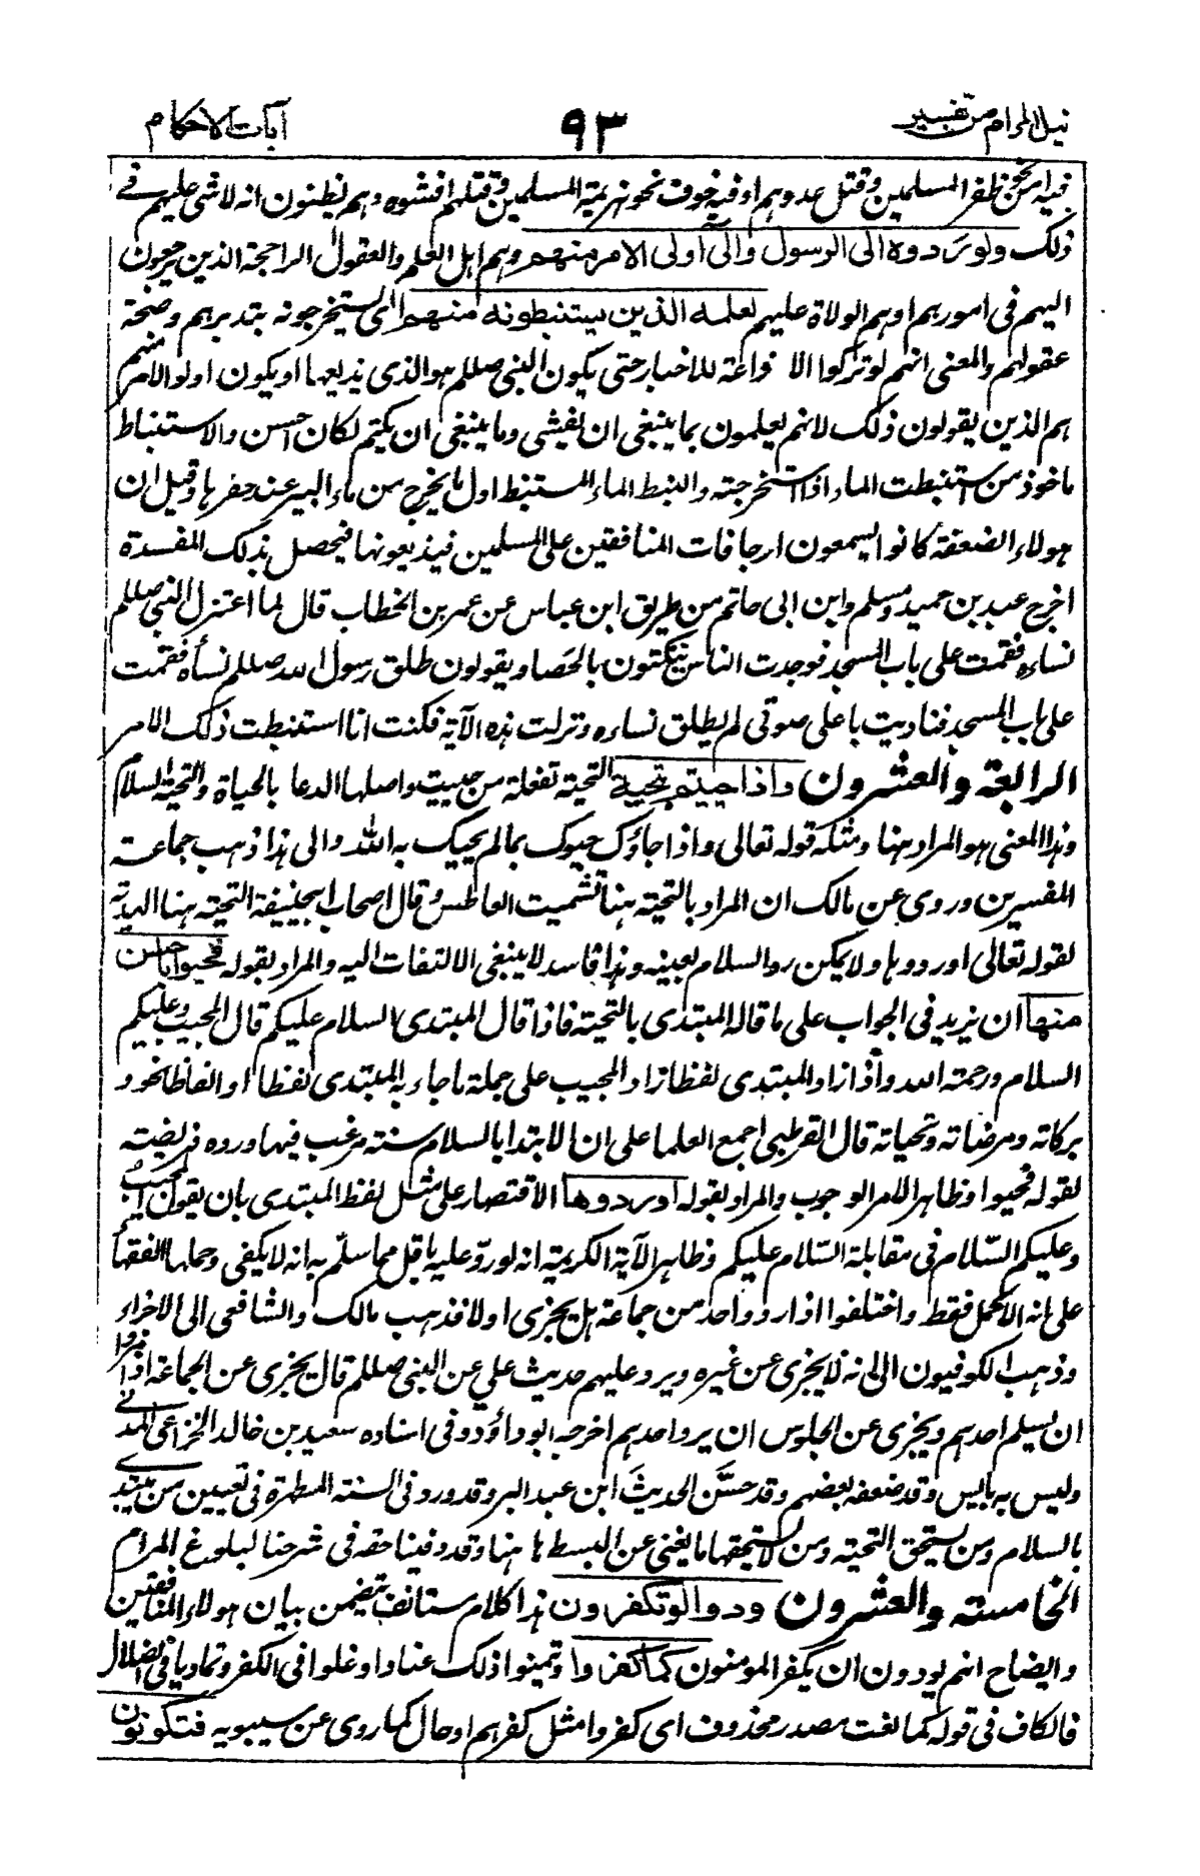 نيل المرام من تفسير ٩٣ آيات الاحكام
فيه امن نحو ظفر المسلمين وقتل عدوهم او فيه خوف نحو هزيمة المسلمين وقتلهم افشوه وهم يظنون انه لا شئ عليهم في
ذلك ولو ردوه الى الرسول والى اولى الامر منهم وهم اهل العلم والعقول الراجحة الذين يرجعون
اليهم في امورهم او هم الولاة عليهم لعلمه الذين يستنبطونه منهم اى يستخرجونه بتدبيرهم وصحة
عقولهم والمعنى انهم لو تركوا الاذاعة للاخبار حتى يكون النبي صللم هو الذى يذيعها او يكون اولو الامر منهم
هم الذين يقولون ذلك لانهم يعلمون بما ينبغى ان يفشى وما ينبغى ان يكتم لكان احسن والاستنباط
ماخوذ من استنبطت الماء اذا استخرجته والنبط الماء المستنبط اول ما يخرج من ماء البير عند حفرها وقيل ان
هولاء الضعفة كانوا يسمعون ارجافات المنافقين على المسلمين فيذيعونها فيحصل بذلك المفسدة
اخرج عبد بن حميد ومسلم وابن ابى حاتم من طريق ابن عباس عن عمر بن الخطاب قال لما اعتزل النبي صللم
نساءه فقمت على باب المسجد فوجدت الناس ينكتون بالحصا ويقولون طلق رسول الله صللم نسأه فقمت
على باب المسجد فناديت باعلى صوتى لم يطلق نساءه ونزلت هذه الآية فكنت انا استنبطت ذلك الامر
الرابعة والعشرون واذا حييتم بتحية التحية تفعلة من حييت واصلها الدعا بالحياة والتحية السلام
وهذا المعنى هو المراد هنا ومثله قوله تعالى واذا جاؤك حيوك بما لم يحيك به الله والى هذا ذهب جماعة
المفسرين وروى عن مالك ان المراد بالتحية هنا تشميت العاطس وقال اصحاب ابيحنيفة التحية هنا الهدية
لقوله تعالى او ردوها ولا يمكن رد السلام بعينه وهذا فاسد لا ينبغى الالتفات اليه والمراد بقوله فحيوا باحسن
منها ان يزيد في الجواب على ما قاله المبتدى بالتحية فاذا قال المبتدى السلام عليكم قال المجيب وعليكم
السلام ورحمة الله واذا زاد المبتدى لفظا زاد المجيب على جملة ما جاء به المبتدى لفظا او الفاظا نحو و
بركاته ومرضاته وتحياته قال القرطبى اجمع العلما على ان الابتدا بالسلام سنة مرغب فيها ورده فريضة
لقوله فحيوا وظاهر الامر الوجوب والمراد بقوله او ردوها الاقتصار على مثل لفظ المبتدى بان يقول المجيب
وعليكم السّلام في مقابلة السّلام عليكم وظاهر الآية الكريمة انه لو ردّ عليه باقل مما سلّم به انه لا يكفى وحملها الفقهأ
على انه الاكمل فقط واختلفوا اذا رد واحد من جماعة هل يجزى اولا فذهب مالك والشافعى الى الاجزاء
وذهب الكوفيون الى انه لا يجزى عن غيره ويرد عليهم حديث علي عن النبي صللم قال يجزى عن الجماعة اذا مروا
ان يسلم احدهم ويجزى عن الجلوس ان يرد احدهم اخرجه ابو داؤد وفى اسناده سعيد بن خالد الخزاعى المدنى
وليس به باس وقد ضعفه بعضهم وقد حسَّن الحديثَ ابن عبد البر وقد ورد فى السنة المطهرة فى تعيين من يبتدى
بالسلام ومن يستحق التحية ومن لا يستحقها ما يغنى عن البسط هاهنا وقد وفينا حقه فى شرحنا لبلوغ المرام
الخامسة والعشرون ودوا لو تكفرون هذا كلام مستانف يتضمن بيان هولاء المنافقين
وايضاح انهم يودون ان يكفر المومنون كما كفروا وتمنوا ذلك عنادا وغلوا فى الكفر وتماديا فى الضلال
فالكاف فى قوله كما نعت مصدر محذوف اى كفروا مثل كفرهم او حال كما روى عن سيبويه فتكونون